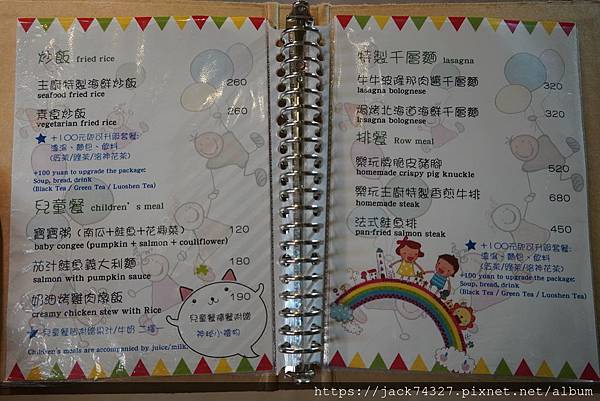 炒飯 fried rice
主廚特製海鮮炒飯 260
seafood fried rice
素食炒飯 260
vegetarian fried rice
+100元即可升級套餐:
濃湯、麵包、飲料
(紅茶/綠茶/洛神花茶)
+100 yuan to upgrade the package:
Soup, bread, drink
(Black Tea / Green Tea / Luoshen Tea)
兒童餐 children's meal
寶寶粥(南瓜+鮭魚+花椰菜) 120
baby congee (pumpkin + salmon + couliflower)
茄汁鮭魚義大利麵 180
salmon with pumpkin sauce
奶油烤雞肉燉飯 190
creamy chicken stew with Rice
兒童餐附贈果汁/牛奶 二擇一
Children's meals are accompanied by juice/milk.
兒童餐獨餐附贈
神秘小禮物
特製千層麵 lasagna
牛牛波隆那肉醬千層麵 320
lasagna bolognese
焗烤北海道海鮮千層麵 320
lasagna bolognese
排餐 Row meal
樂玩德式脆皮豬腳 520
homemade crispy pig knuckle
樂玩主廚特製香煎牛排 680
homemade steak
法式鮭魚排 450
pan-fried salmon steak
+100元即可升級套餐:
濃湯、麵包、飲料
(紅茶/綠茶/洛神花茶)
+100 yuan to upgrade the package:
Soup, bread, drink
(Black Tea / Green Tea / Luoshen Tea)
https://jack74327.pixnet.net/album